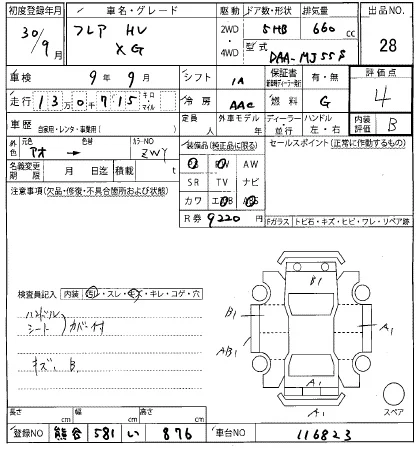 初度登録年月 車名・グレード 駆動 ドア数・形状 排気量 出品NO.
30/9月 フレア HV XG 2WD・4WD 5HB 660cc 28
型式 DAA-MJ55S
車検 9年9月 シフト IA 保証書 有・無 評価点
新車時ディーラー発行 4
走行 13万0千715 キロ・マイル 冷房 AAC 燃料 G
車歴 自家用・レンタ・事業用( ) 定員 人 外車モデル 年 ディーラー・並行 ハンドル 左・右 内装評価 B
外色 元色 アオ → 色替 カラーNO ZWY
装備品(純正品に限る) セールスポイント(正常に作動するもの)
名義変更期限 月 日迄 積載 t
PS PW AW
SR TV ナビ
カワ エアB ABS
注意事項(欠品・修復・不具合箇所および状態)
R券 9220円
Fガラス トビ石・キズ・ヒビ・ワレ・リペア跡
検査員記入 内装 汚レ・スレ・キズ・キレ・コゲ・穴
ハンドル
シート カバー付
キズ、B
B1
B1
A1
A/B1
A1
A1
スペア
長さ cm 幅 cm 高さ cm
登録NO 熊谷 581 い 876 車台NO 116823